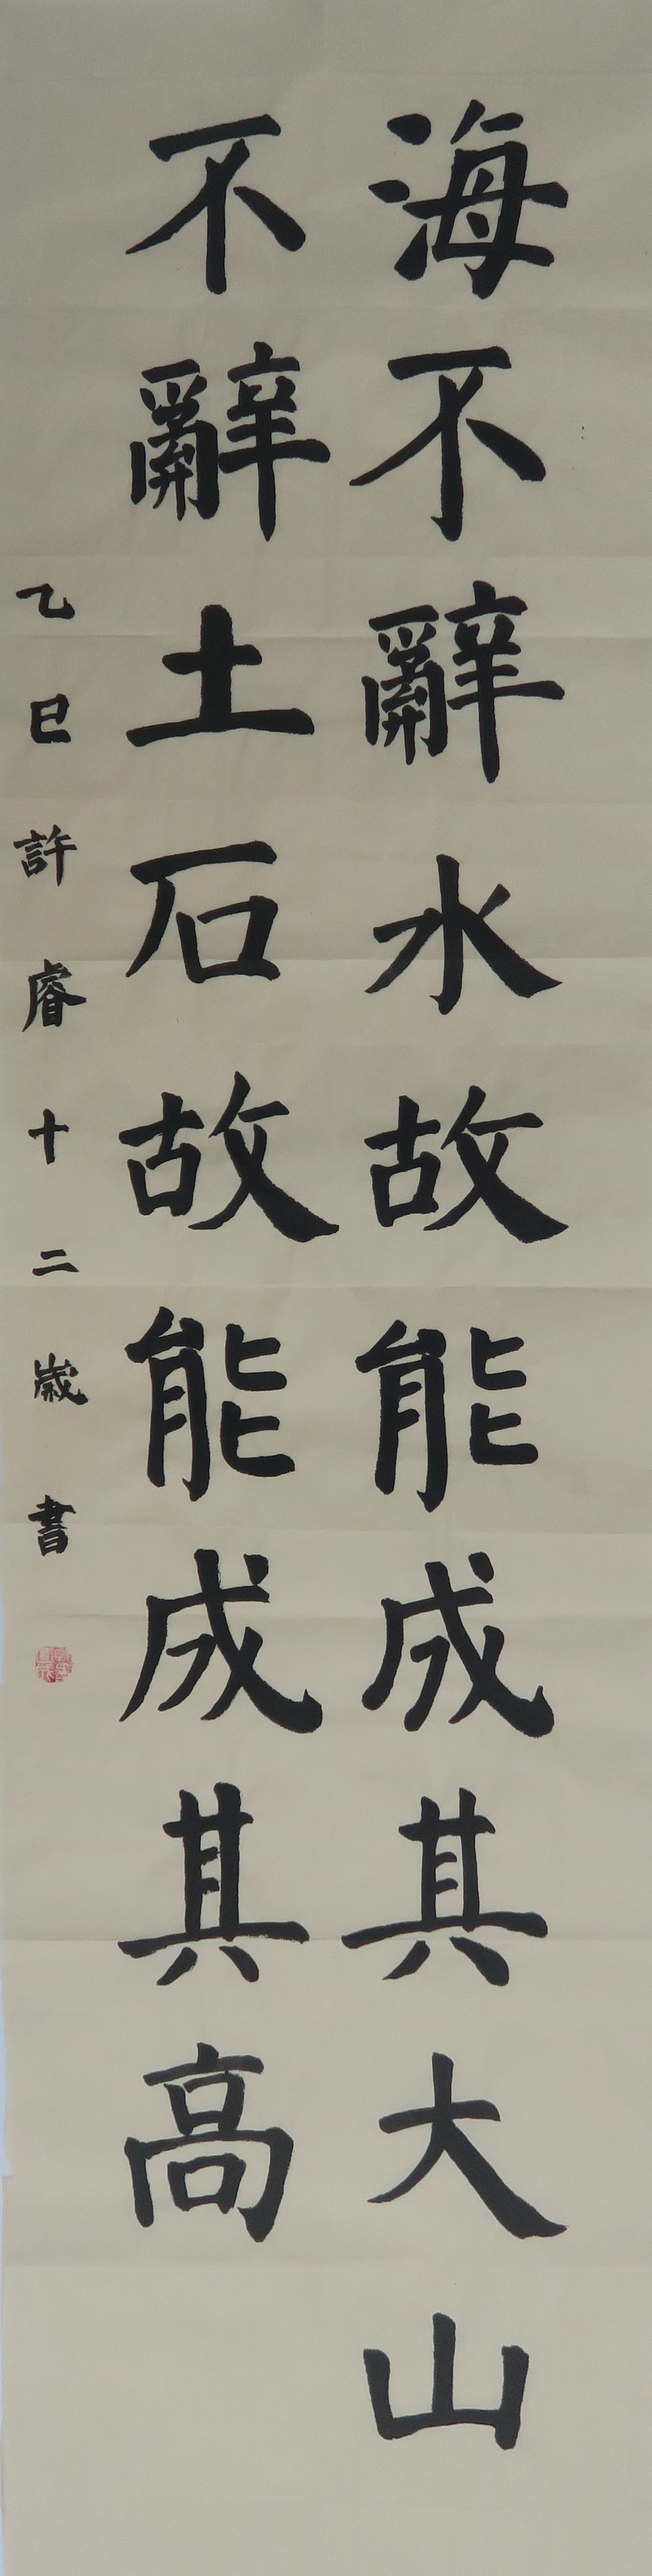 海不辭水故能成其大山
不辭土石故能成其高
乙巳許睿十二歲書